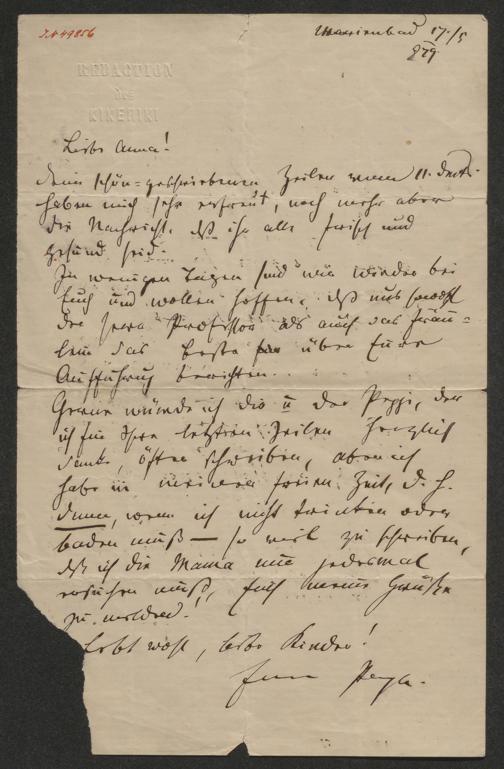 I.N 49856
Marienbad 17./5
879
REDACTION
des
KIKERIKI
Liebe Anna!
Deine schön-geschriebenen Zeilen vom 11. dMts.
haben mich sehr erfreut, noch mehr aber
die Nachricht, dß ihr alle frisch und
gesund seid.
In wenigen Tagen sind wir wieder bei
Euch und wollen hoffen, dß uns sowohl
der Herr Professor als auch das Fräu-
lein das Beste über Eure
Aufführung berichten.
Gerne würde ich dir u der Peppi, der
ich für Ihre letzten Zeilen herzlich
danke, öfter schreiben, aber ich
habe in meiner freien Zeit, d. h.
dann, wenn ich nicht trinken oder
baden muß — so viel zu schreiben,
dß ich die Mama nur jedesmal
ersuchen muß, Euch meine Grüße
zu melden!
Lebt wohl, liebe Kinder!
Euer Papa.